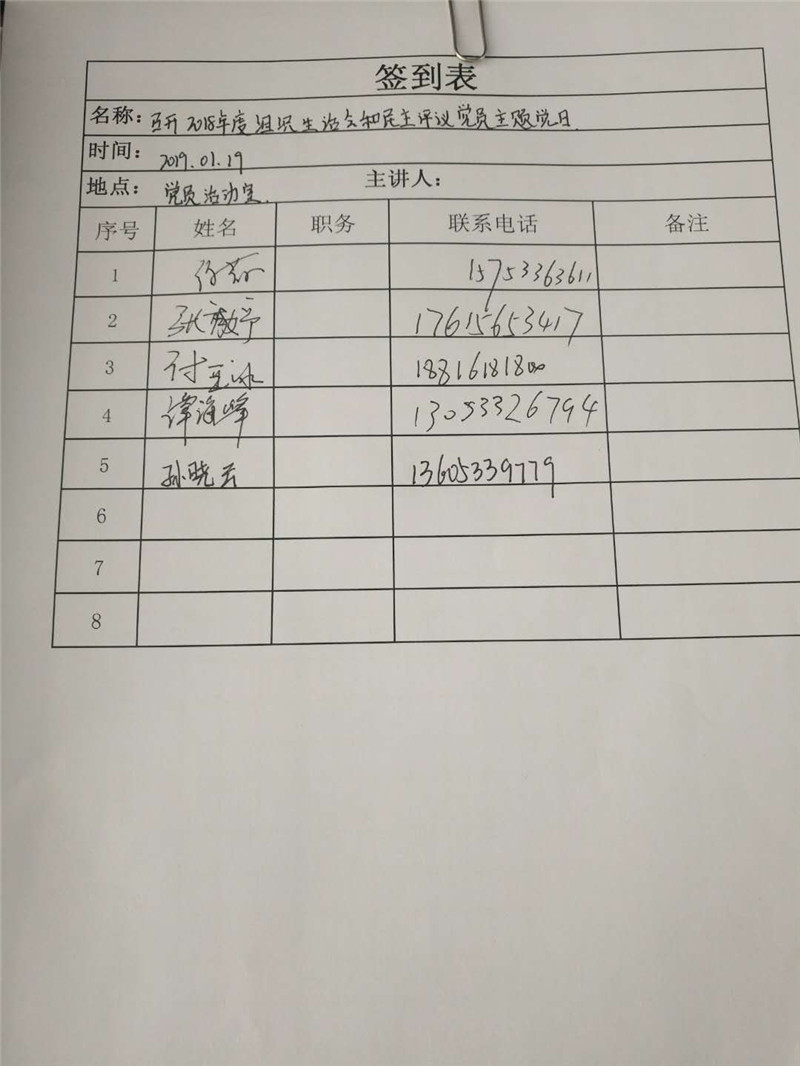 签到表
名称：召开2018年度组织生活会和民主评议党员主题党日.
时间：2019.01.19
地点：党员活动室. 主讲人：
序号 姓名 职务 联系电话 备注
1 徐 15753363611
2 张 17615653417
3 付玉冰 18816181800
4 谭海峰 13053326794
5 孙晓云 13605339779
6
7
8